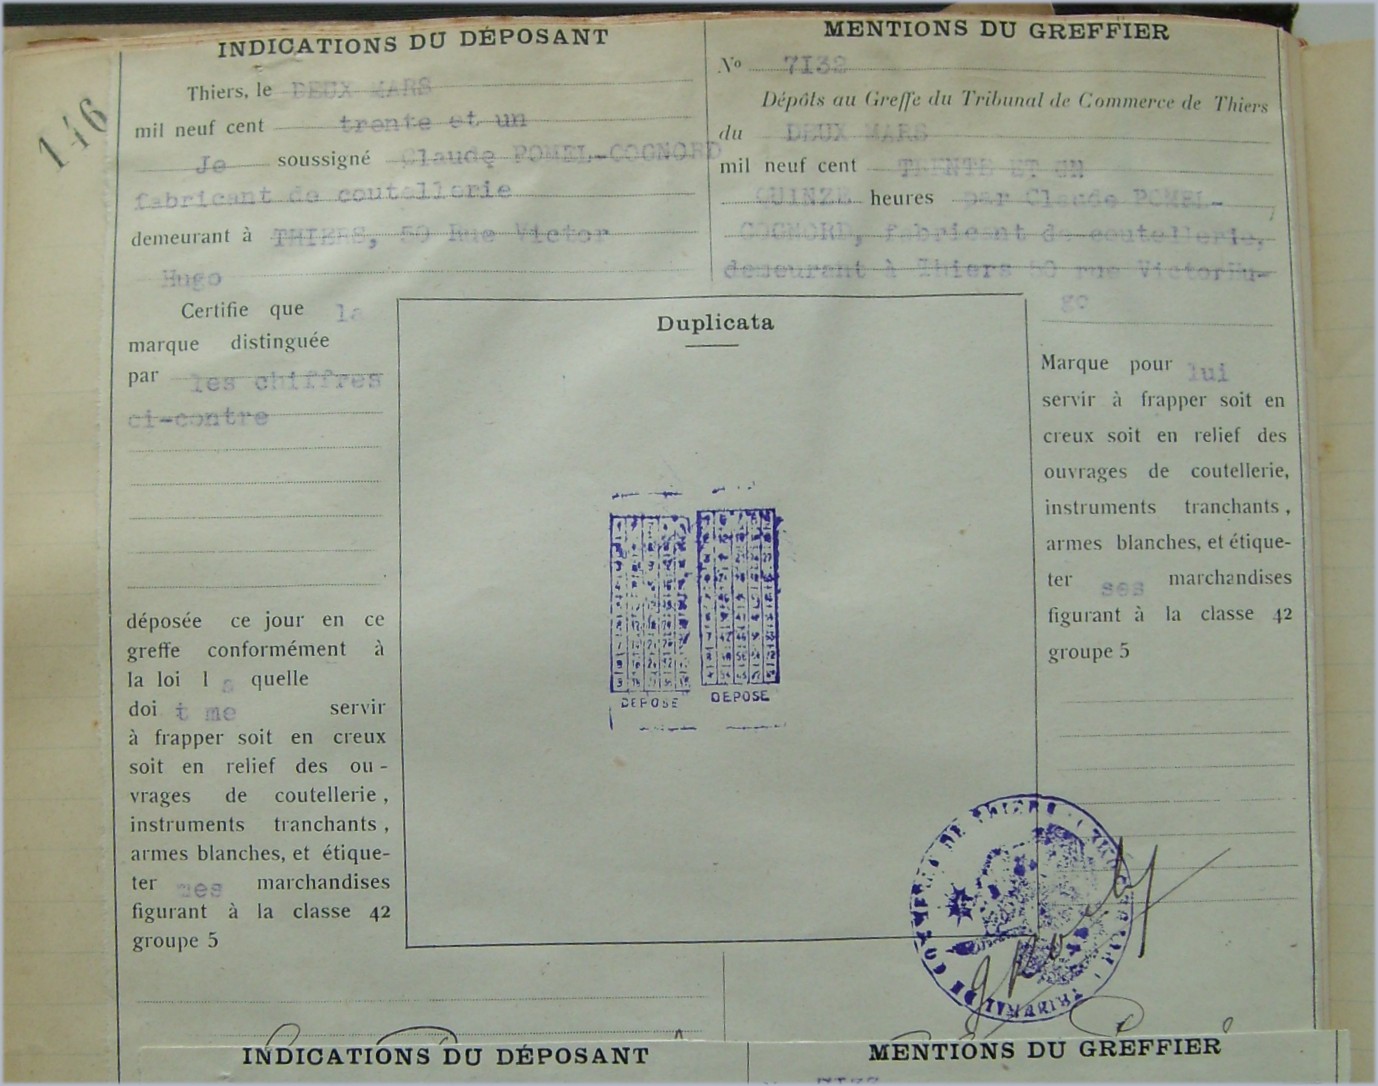 146
INDICATIONS DU DÉPOSANT
Thiers, le DEUX MARS
mil neuf cent trente et un
Je soussigné Claude POMEL-COGNORD
fabricant de coutellerie
demeurant à THIERS, 50 Rue Victor
Hugo
Certifie que la
marque distinguée
par les chiffres
ci-contre
déposée ce jour en ce
greffe conformément à
la loi l a quelle
doi t me servir
à frapper soit en creux
soit en relief des ou-
vrages de coutellerie,
instruments tranchants,
armes blanches, et étique-
ter mes marchandises
figurant à la classe 42
groupe 5
Duplicata
DEPOSE DEPOSE
MENTIONS DU GREFFIER
No 7132
Dépôts au Greffe du Tribunal de Commerce de Thiers
du DEUX MARS
mil neuf cent TRENTE ET UN
QUINZE heures par Claude POMEL-
COGNORD, fabricant de coutellerie,
demeurant à Thiers 50 rue VictorHu-
go
Marque pour lui
servir à frapper soit en
creux soit en relief des
ouvrages de coutellerie,
instruments tranchants,
armes blanches, et étique-
ter ses marchandises
figurant à la classe 42
groupe 5
TRIBUNAL DE COMMERCE DE THIERS
INDICATIONS DU DÉPOSANT
MENTIONS DU GREFFIER